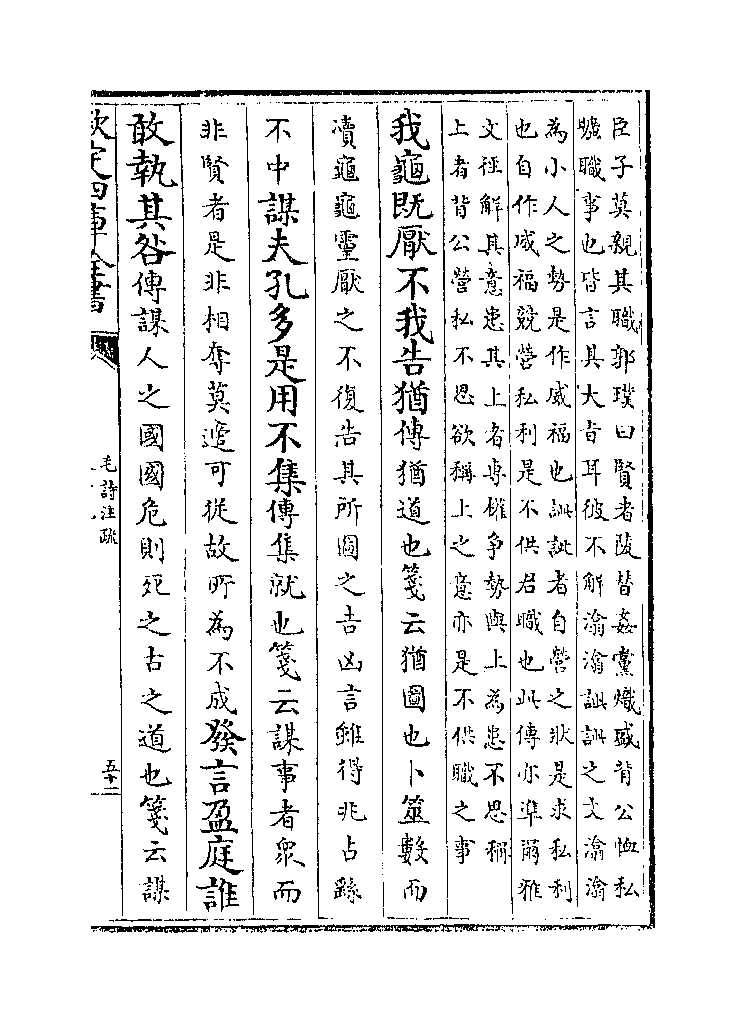 臣子莫親其職郭璞曰賢者陵替姦黨熾盛背公恤私
曠職事也皆言其大旨耳彼不解潝潝訿訿之文潝潝
為小人之勢是作威福也訿訿者自營之狀是求私利
也自作威福競營私利是不供君職也此傳亦準爾雅
文徑解其意患其上者專權爭勢與上為患不思稱
上者背公營私不思欲稱上之意亦是不供職之事
我龜既厭不我告猶傳猶道也箋云猶圖也卜筮數而
瀆龜龜靈厭之不復告其所圖之吉凶言雖得兆占繇
不中謀夫孔多是用不集傳集就也箋云謀事者衆而
非賢者是非相奪莫適可從故所為不成發言盈庭誰
敢執其咎傳謀人之國國危則死之古之道也箋云謀
欽定四庫全書
毛詩注疏
五十二